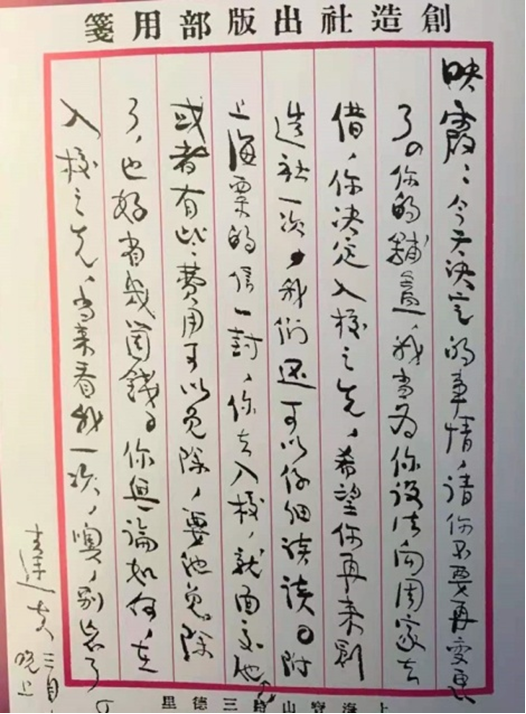 創造社出版部用箋
映霞：今天決定的事情，請你不要再變更
了。你的鋪蓋，我當为你設法向周家去
借，你決定入校之先，希望你再来創
造社一次，我们還可以仔细談談。附
上海粟的信一封，你去入校，就面交他，
或者有些費用可以免除，要他免除
了，也好省幾箇錢。你無論如何，在
入校之先，當来看我一次，噢，別忘了。
達夫 三月
晚上
上海寶山路三德里